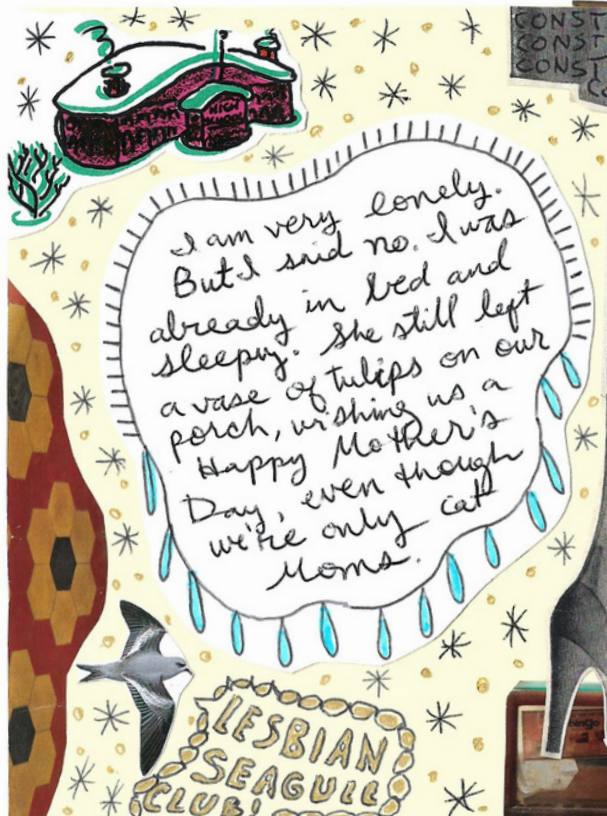 CONST
CONST
CONST
I am very lonely.
But I said no. I was
already in bed and
sleepy. She still left
a vase of tulips on our
porch, wishing us a
Happy Mother's
Day, even though
we're only cat
Moms.
LESBIAN
SEAGULL
CLUB!